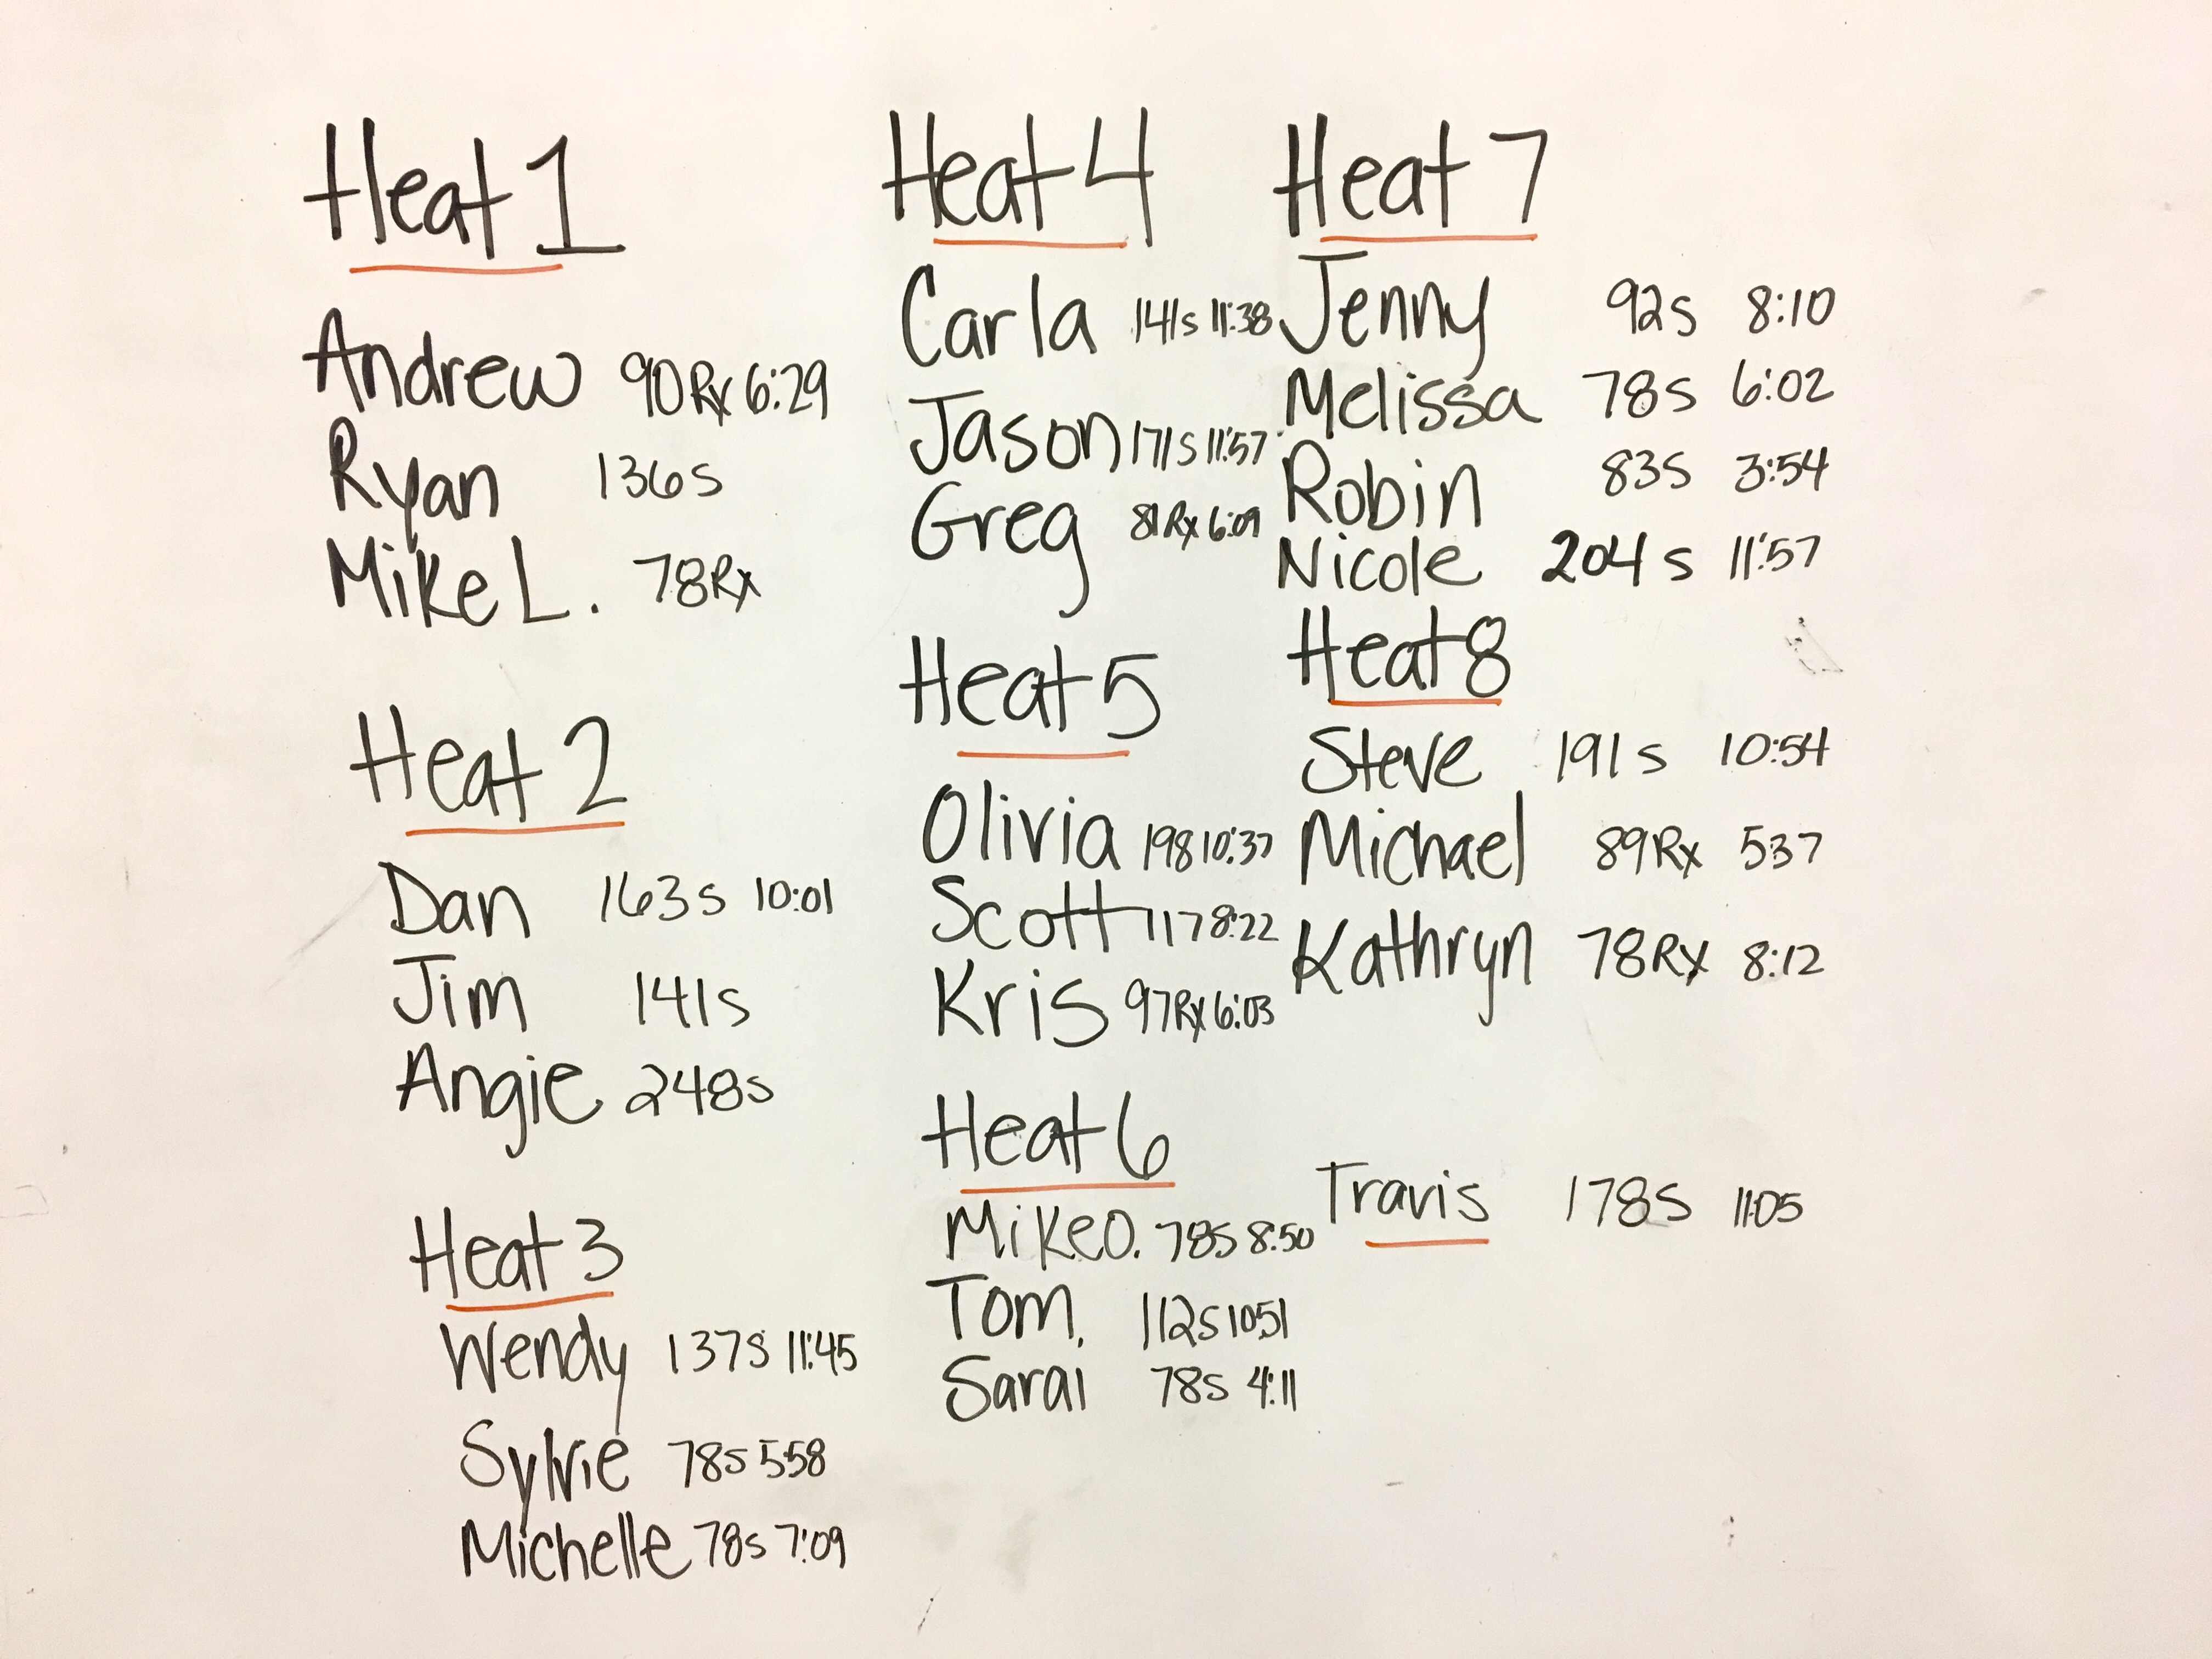 Heat 1
Andrew 90Rx 6:29
Ryan 136s
Mike L. 78Rx
Heat 2
Dan 163s 10:01
Jim 141s
Angie 248s
Heat 3
Wendy 137s 11:45
Sylvie 78s 5:58
Michelle 78s 7:09
Heat 4
Carla 141s 11:38
Jason 171s 11:57
Greg 81Rx 6:09
Heat 5
Olivia 198 10:37
Scott 117 8:22
Kris 97Rx 6:03
Heat 6
Mike O. 78s 8:50
Tom. 112s 10:51
Sarai 78s 4:11
Heat 7
Jenny 92s 8:10
Melissa 78s 6:02
Robin 83s 3:54
Nicole 204s 11:57
Heat 8
Steve 191s 10:54
Michael 89Rx 537
Kathryn 78Rx 8:12
Travis 178s 11:05